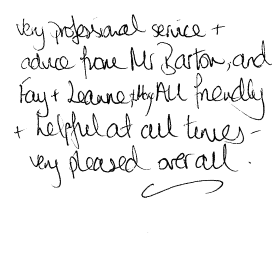 very professional service +
advice from Mr Barton, and
Fay + Leanne, All friendly
+ helpful at all times -
very pleased overall.